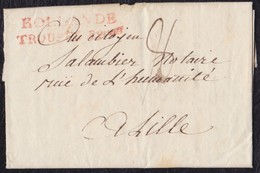 HOLLANDE
TROUPES
Au citoyen
Salembier Notaire
rue de L'humanité
A Lille